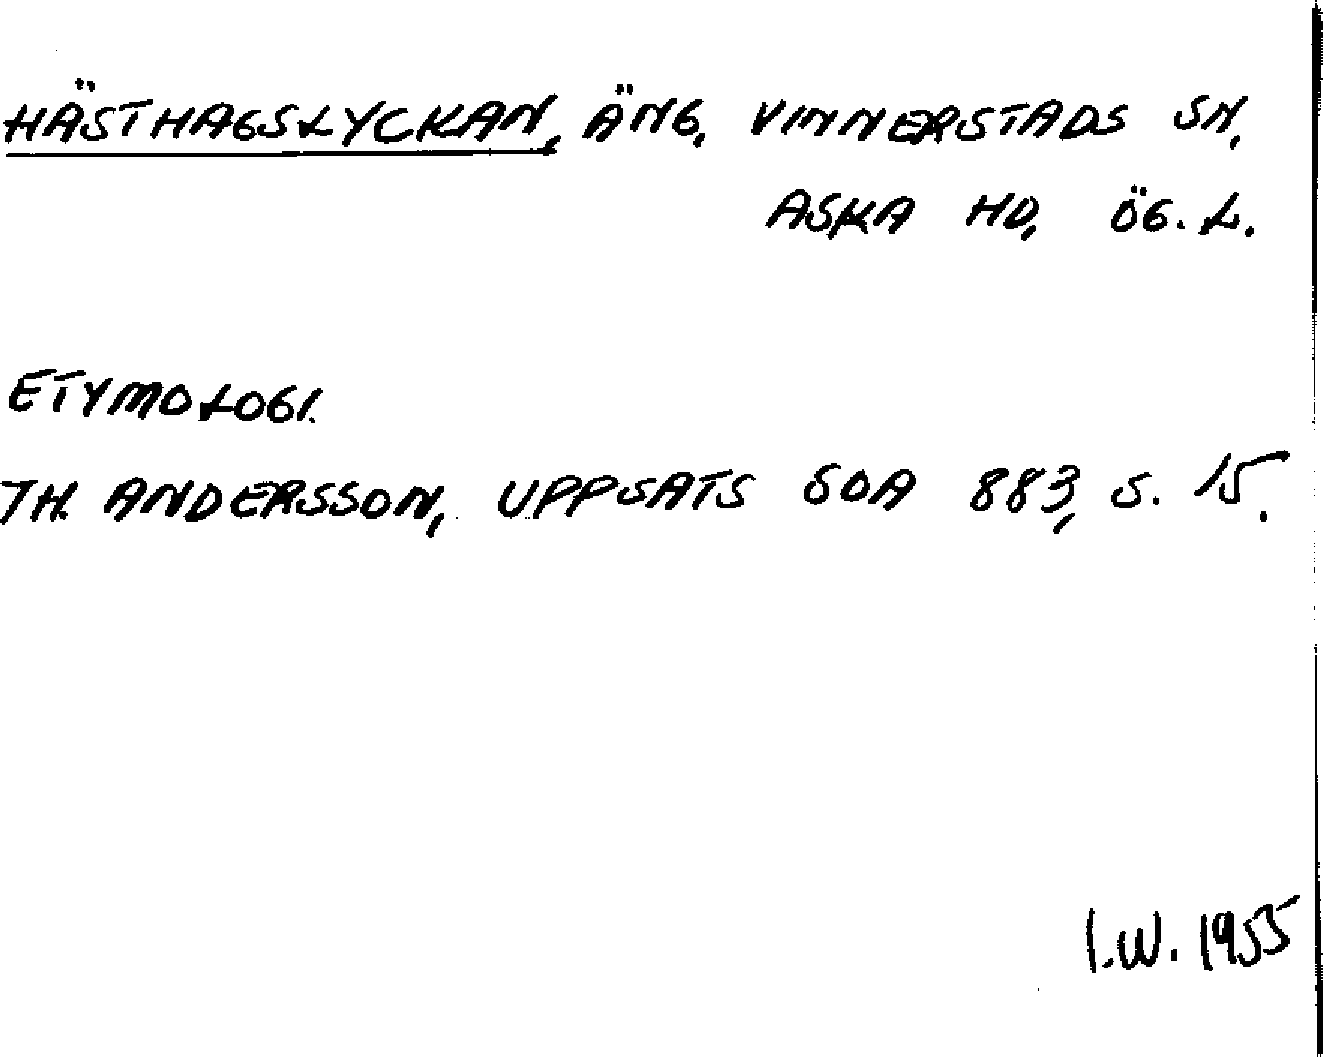 HÄSTHAGSLYCKAN, ÄNG, VINNERSTADS SN,
ASKA HD, ÖG. L.
ETYMOLOGI.
TH. ANDERSSON, UPPSATS SOA 883, S. 15.
I.W. 1955